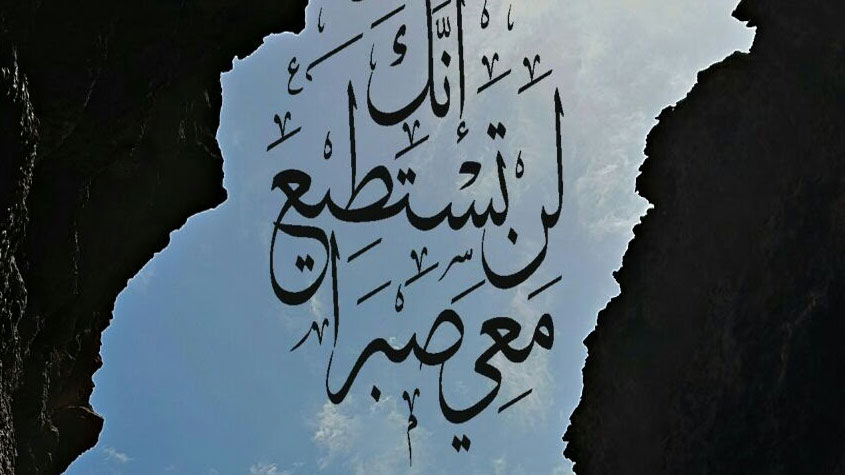 إنَّكَ
لَن تَسْتَطِيعَ
مَعِي صَبْرًا